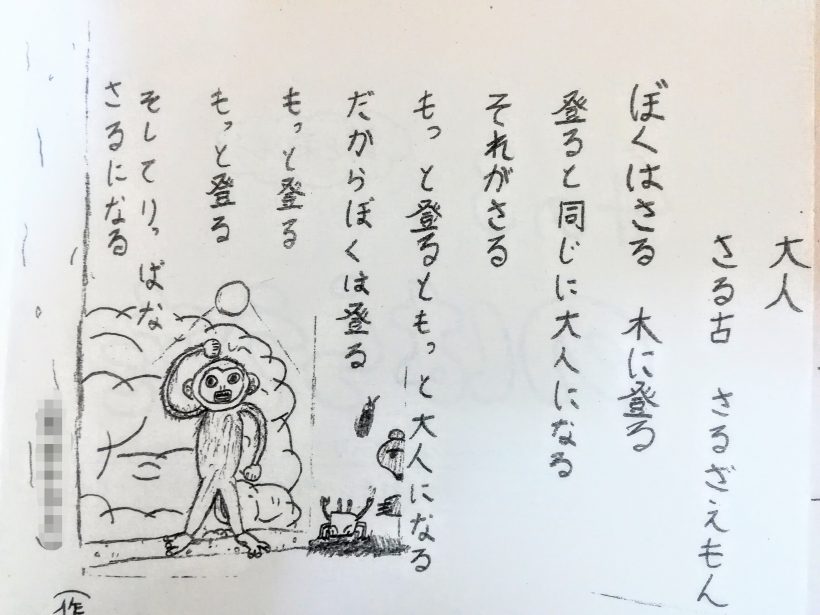 大人
さる古　さるざえもん
ぼくはさる　木に登る
登ると同じに大人になる
それがさる
もっと登るともっと大人になる
だからぼくは登る
もっと登る
もっと登る
そしてりっぱな
さるになる
(作